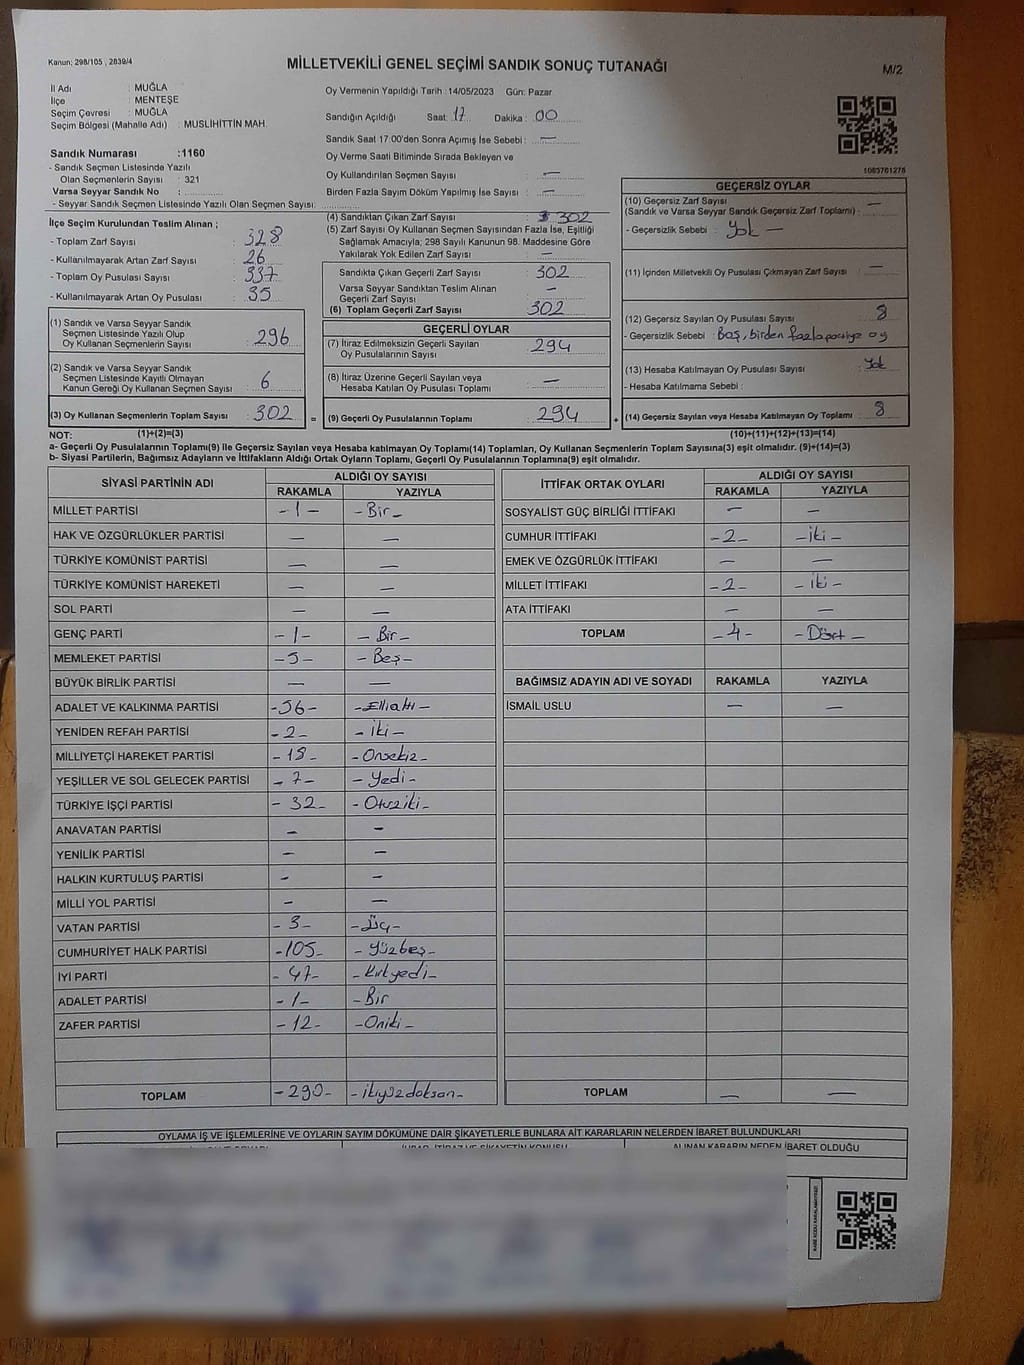 Kanun; 298/105 , 2839/4
MİLLETVEKİLİ GENEL SEÇİMİ SANDIK SONUÇ TUTANAĞI
M/2
İl Adı : MUĞLA
İlçe : MENTEŞE
Seçim Çevresi : MUĞLA
Seçim Bölgesi (Mahalle Adı) : MUSLİHİTTİN MAH.
Oy Vermenin Yapıldığı Tarih : 14/05/2023 Gün: Pazar
Sandığın Açıldığı Saat: 17 Dakika : 00
Sandık Saat 17:00'den Sonra Açımış İse Sebebi : —
Oy Verme Saati Bitiminde Sırada Bekleyen ve
Oy Kullandırılan Seçmen Sayısı : —
Birden Fazla Sayım Döküm Yapılmış İse Sayısı : —
Sandık Numarası :1160
- Sandık Seçmen Listesinde Yazılı
Olan Seçmenlerin Sayısı : 321
Varsa Seyyar Sandık No :
- Seyyar Sandık Seçmen Listesinde Yazılı Olan Seçmen Sayısı:
1083781278
İlçe Seçim Kurulundan Teslim Alınan ;
- Toplam Zarf Sayısı : 328
- Kullanılmayarak Artan Zarf Sayısı : 26
- Toplam Oy Pusulası Sayısı : 337
- Kullanılmayarak Artan Oy Pusulası : 35
(1) Sandık ve Varsa Seyyar Sandık
Seçmen Listesinde Yazılı Olup
Oy Kullanan Seçmenlerin Sayısı : 296
(2) Sandık ve Varsa Seyyar Sandık
Seçmen Listesinde Kayıtlı Olmayan
Kanun Gereği Oy Kullanan Seçmen Sayısı : 6
(3) Oy Kullanan Seçmenlerin Toplam Sayısı : 302 =
(4) Sandıktan Çıkan Zarf Sayısı : 302
(5) Zarf Sayısı Oy Kullanan Seçmen Sayısından Fazla İse, Eşitliği
Sağlamak Amacıyla; 298 Sayılı Kanunun 98. Maddesine Göre
Yakılarak Yok Edilen Zarf Sayısı : —
Sandıkta Çıkan Geçerli Zarf Sayısı : 302
Varsa Seyyar Sandıktan Teslim Alınan
Geçerli Zarf Sayısı : —
(6) Toplam Geçerli Zarf Sayısı : 302
GEÇERLİ OYLAR
(7) İtiraz Edilmeksizin Geçerli Sayılan
Oy Pusulalarının Sayısı : 294
(8) İtiraz Üzerine Geçerli Sayılan veya
Hesaba Katılan Oy Pusulası Toplamı : —
(9) Geçerli Oy Pusulalarının Toplamı : 294 +
GEÇERSİZ OYLAR
(10) Geçersiz Zarf Sayısı
(Sandık ve Varsa Seyyar Sandık Geçersiz Zarf Toplamı) : —
- Geçersizlik Sebebi : Yok —
(11) İçinden Milletvekili Oy Pusulası Çıkmayan Zarf Sayısı : —
(12) Geçersiz Sayılan Oy Pusulası Sayısı : 8
- Geçersizlik Sebebi : Boş, birden fazla partiye oy
(13) Hesaba Katılmayan Oy Pusulası Sayısı : Yok
- Hesaba Katılmama Sebebi :
(14) Geçersiz Sayılan veya Hesaba Katılmayan Oy Toplamı : 8
NOT: (1)+(2)=(3) (10)+(11)+(12)+(13)=(14)
a- Geçerli Oy Pusulalarının Toplamı(9) ile Geçersiz Sayılan veya Hesaba katılmayan Oy Toplamı(14) Toplamları, Oy Kullanan Seçmenlerin Toplam Sayısına(3) eşit olmalıdır. (9)+(14)=(3)
b- Siyasi Partilerin, Bağımsız Adayların ve İttifakların Aldığı Ortak Oyların Toplamı, Geçerli Oy Pusulalarının Toplamına(9) eşit olmalıdır.
SİYASİ PARTİNİN ADI ALDIĞI OY SAYISI
RAKAMLA YAZIYLA
MİLLET PARTİSİ -1- -Bir-
HAK VE ÖZGÜRLÜKLER PARTİSİ — —
TÜRKİYE KOMÜNİST PARTİSİ — —
TÜRKİYE KOMÜNİST HAREKETİ — —
SOL PARTİ — —
GENÇ PARTİ -1- -Bir-
MEMLEKET PARTİSİ -5- -Beş-
BÜYÜK BİRLİK PARTİSİ — —
ADALET VE KALKINMA PARTİSİ -56- -Ellialtı-
YENİDEN REFAH PARTİSİ -2- -iki-
MİLLİYETÇİ HAREKET PARTİSİ -18- -Onsekiz-
YEŞİLLER VE SOL GELECEK PARTİSİ -7- -Yedi-
TÜRKİYE İŞÇİ PARTİSİ -32- -Otuziki-
ANAVATAN PARTİSİ — —
YENİLİK PARTİSİ — —
HALKIN KURTULUŞ PARTİSİ - -
MİLLİ YOL PARTİSİ - —
VATAN PARTİSİ -3- -Üç-
CUMHURİYET HALK PARTİSİ -105- -Yüzbeş-
İYİ PARTİ -47- -Kırkyedi-
ADALET PARTİSİ -1- -Bir
ZAFER PARTİSİ -12- -Oniki-
TOPLAM -290- -ikiyüzdoksan-
İTTİFAK ORTAK OYLARI ALDIĞI OY SAYISI
RAKAMLA YAZIYLA
SOSYALİST GÜÇ BİRLİĞİ İTTİFAKI — —
CUMHUR İTTİFAKI -2- -iki-
EMEK VE ÖZGÜRLÜK İTTİFAKI — —
MİLLET İTTİFAKI -2- -iki-
ATA İTTİFAKI — —
TOPLAM -4- -Dört-
BAĞIMSIZ ADAYIN ADI VE SOYADI RAKAMLA YAZIYLA
İSMAİL USLU — —
TOPLAM — —
OYLAMA İŞ VE İŞLEMLERİNE VE OYLARIN SAYIM DÖKÜMÜNE DAİR ŞİKAYETLERLE BUNLARA AİT KARARLARIN NELERDEN İBARET BULUNDUKLARI
ALINAN KARARIN NEDEN İBARET OLDUĞU